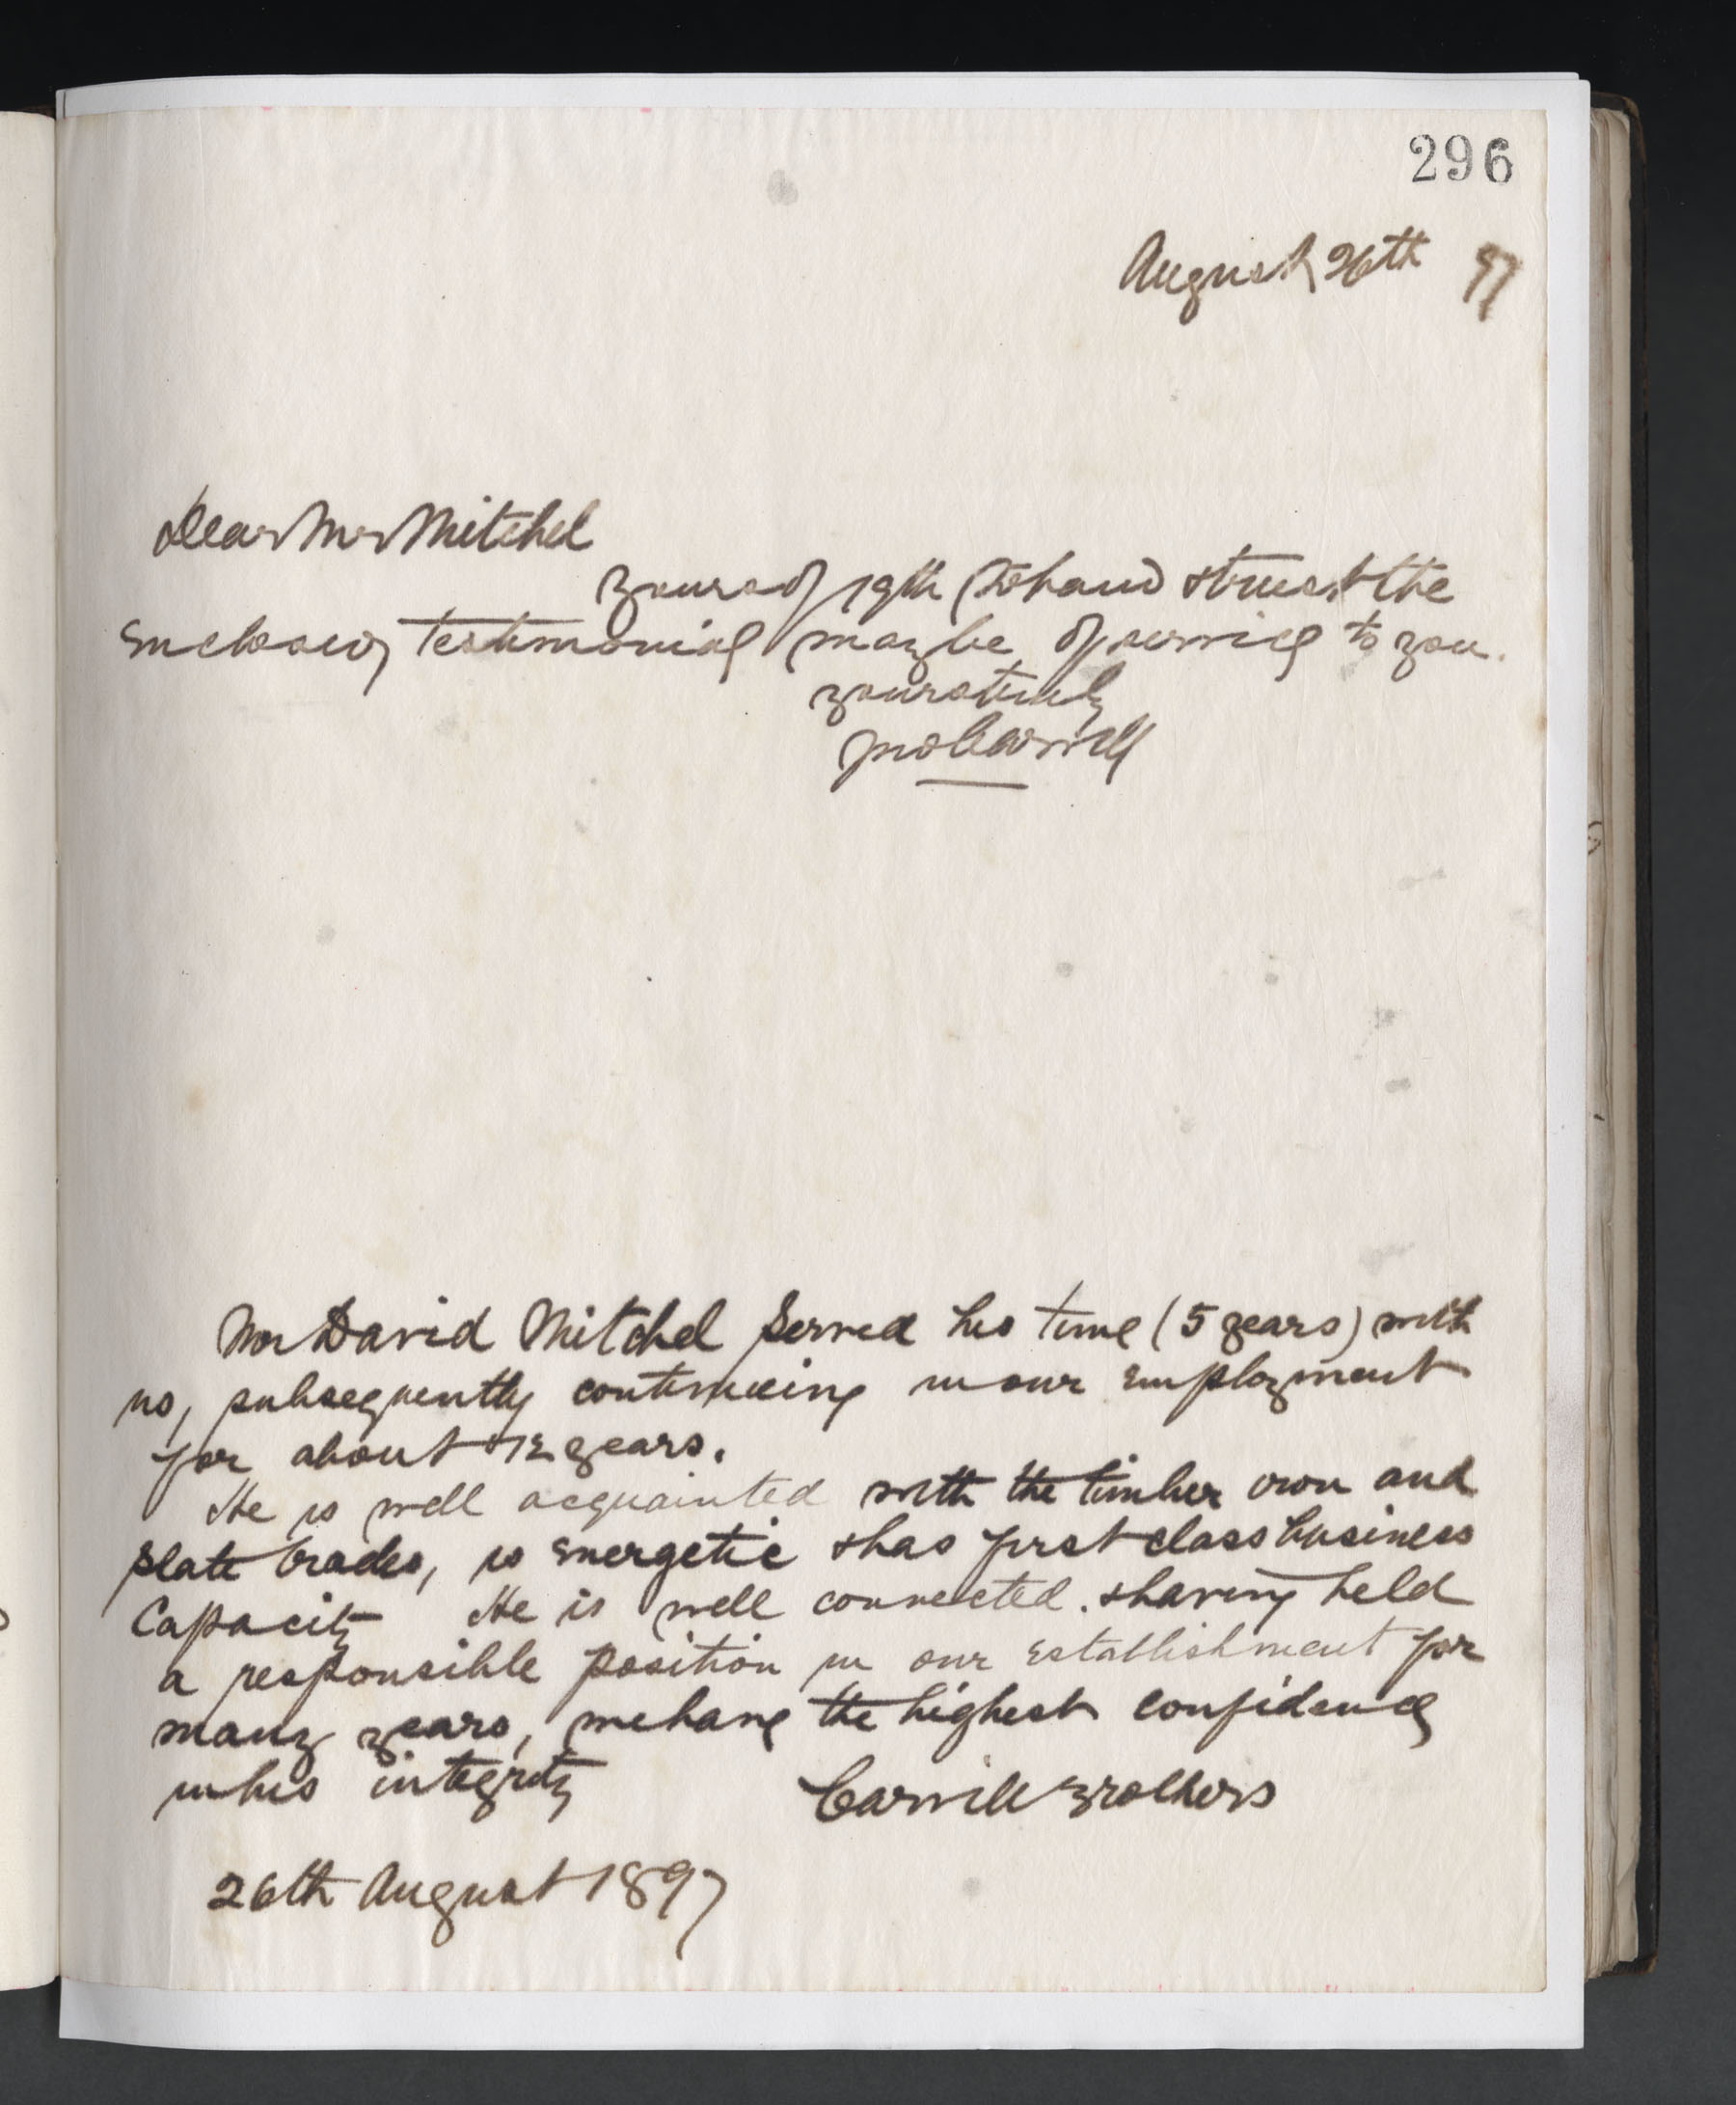 296
August 26th 97
Dear Mr Mitchel
Yours of 19th to hand & trust the
enclosed testimonial may be of service to you.
Yours truly
Jno Carvill
Mr David Mitchel served his time (5 years) with
us, subsequently continuing in our employment
for about 12 years.
He is well acquainted with the timber iron and
slate trades, is energetic & has first class business
Capacity He is well connected. & having held
a responsible position in our establishment for
many years, we have the highest confidence
in his integrity Carvill Brothers
26th August 1897